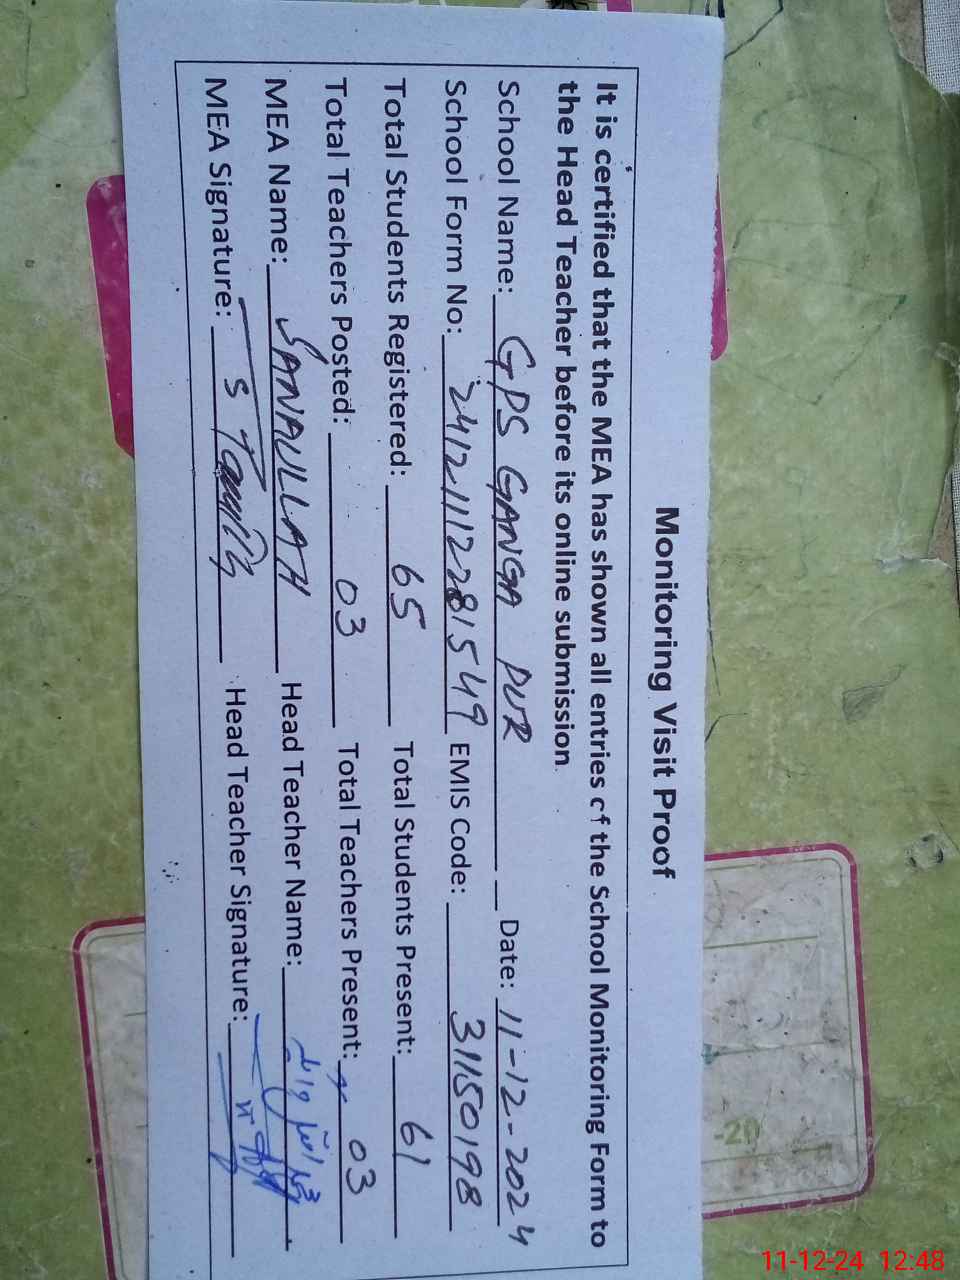 Monitoring Visit Proof
It is certified that the MEA has shown all entries of the School Monitoring Form to
the Head Teacher before its online submission.
School Name: GPS GANGA PUR Date: 11-12-2024
School Form No: 24121112281549 EMIS Code: 31150198
Total Students Registered: 65 Total Students Present: 61
Total Teachers Posted: 03 Total Teachers Present: 03
MEA Name: SANAULLAH Head Teacher Name:
MEA Signature: Head Teacher Signature:
-20
11-12-24 12:48